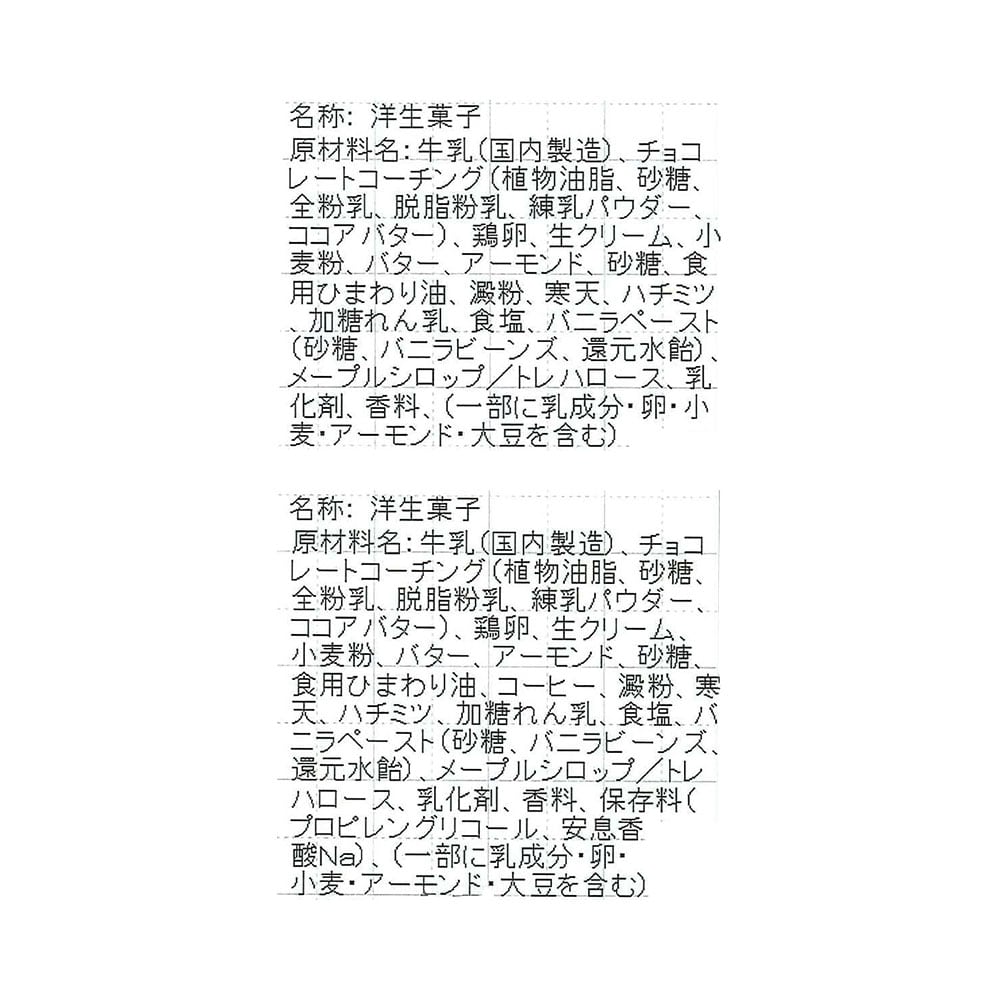 名称: 洋生菓子
原材料名:牛乳(国内製造)、チョコ
レートコーチング(植物油脂、砂糖、
全粉乳、脱脂粉乳、練乳パウダー、
ココアバター)、鶏卵、生クリーム、小
麦粉、バター、アーモンド、砂糖、食
用ひまわり油、澱粉、寒天、ハチミツ
、加糖れん乳、食塩、バニラペースト
(砂糖、バニラビーンズ、還元水飴)、
メープルシロップ/トレハロース、乳
化剤、香料、(一部に乳成分・卵・小
麦・アーモンド・大豆を含む)
名称: 洋生菓子
原材料名:牛乳(国内製造)、チョコ
レートコーチング(植物油脂、砂糖、
全粉乳、脱脂粉乳、練乳パウダー、
ココアバター)、鶏卵、生クリーム、
小麦粉、バター、アーモンド、砂糖、
食用ひまわり油、コーヒー、澱粉、寒
天、ハチミツ、加糖れん乳、食塩、バ
ニラペースト(砂糖、バニラビーンズ、
還元水飴)、メープルシロップ/トレ
ハロース、乳化剤、香料、保存料(
プロピレングリコール、安息香
酸Na)、(一部に乳成分・卵・
小麦・アーモンド・大豆を含む)